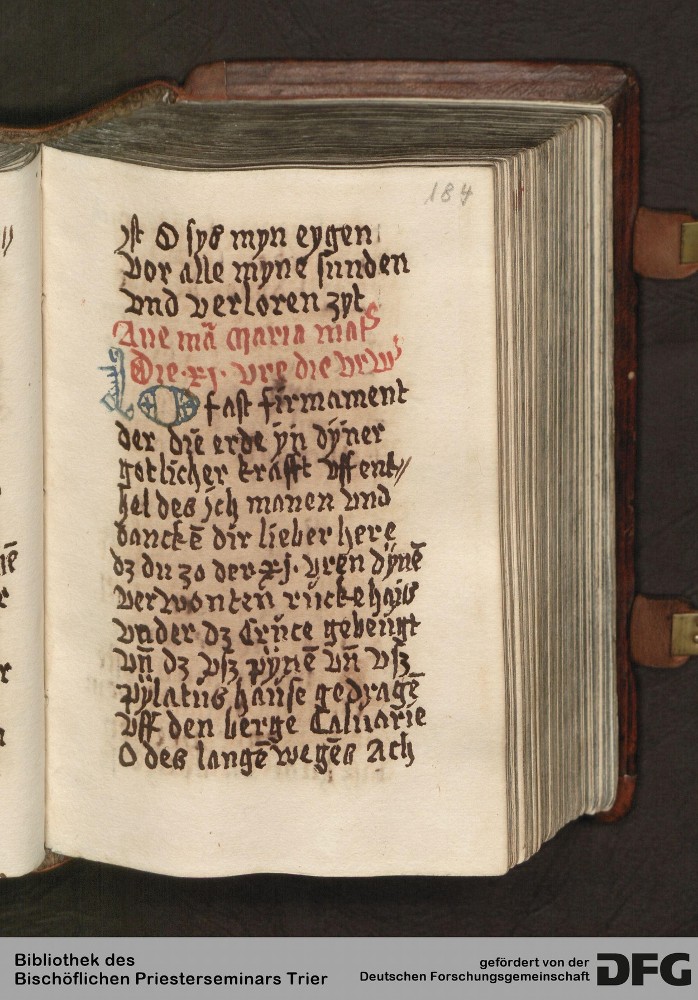 184
ist O sys myn eygen
vor alle myne sunden
vnd verloren zyt
Aue mā Maria mat͛
Die · xj · vre die vrw͛
O fast firmament
der die erde yn dyner
gotlicher krafft vffent//
hal des ich manen vnd
dancke dir lieber here
dz du zo der xj · vren dynē
verwonten rucke hais
vnder dz Cruce gebeugt
vn̄ dz vsz pynē vn̄ vsz
pylatus hause gedragē
vff den berge Caluarie
O des langē weges Ach
Bibliothek des
Bischöflichen Priesterseminars Trier
gefördert von der
Deutschen Forschungsgemeinschaft
DFG